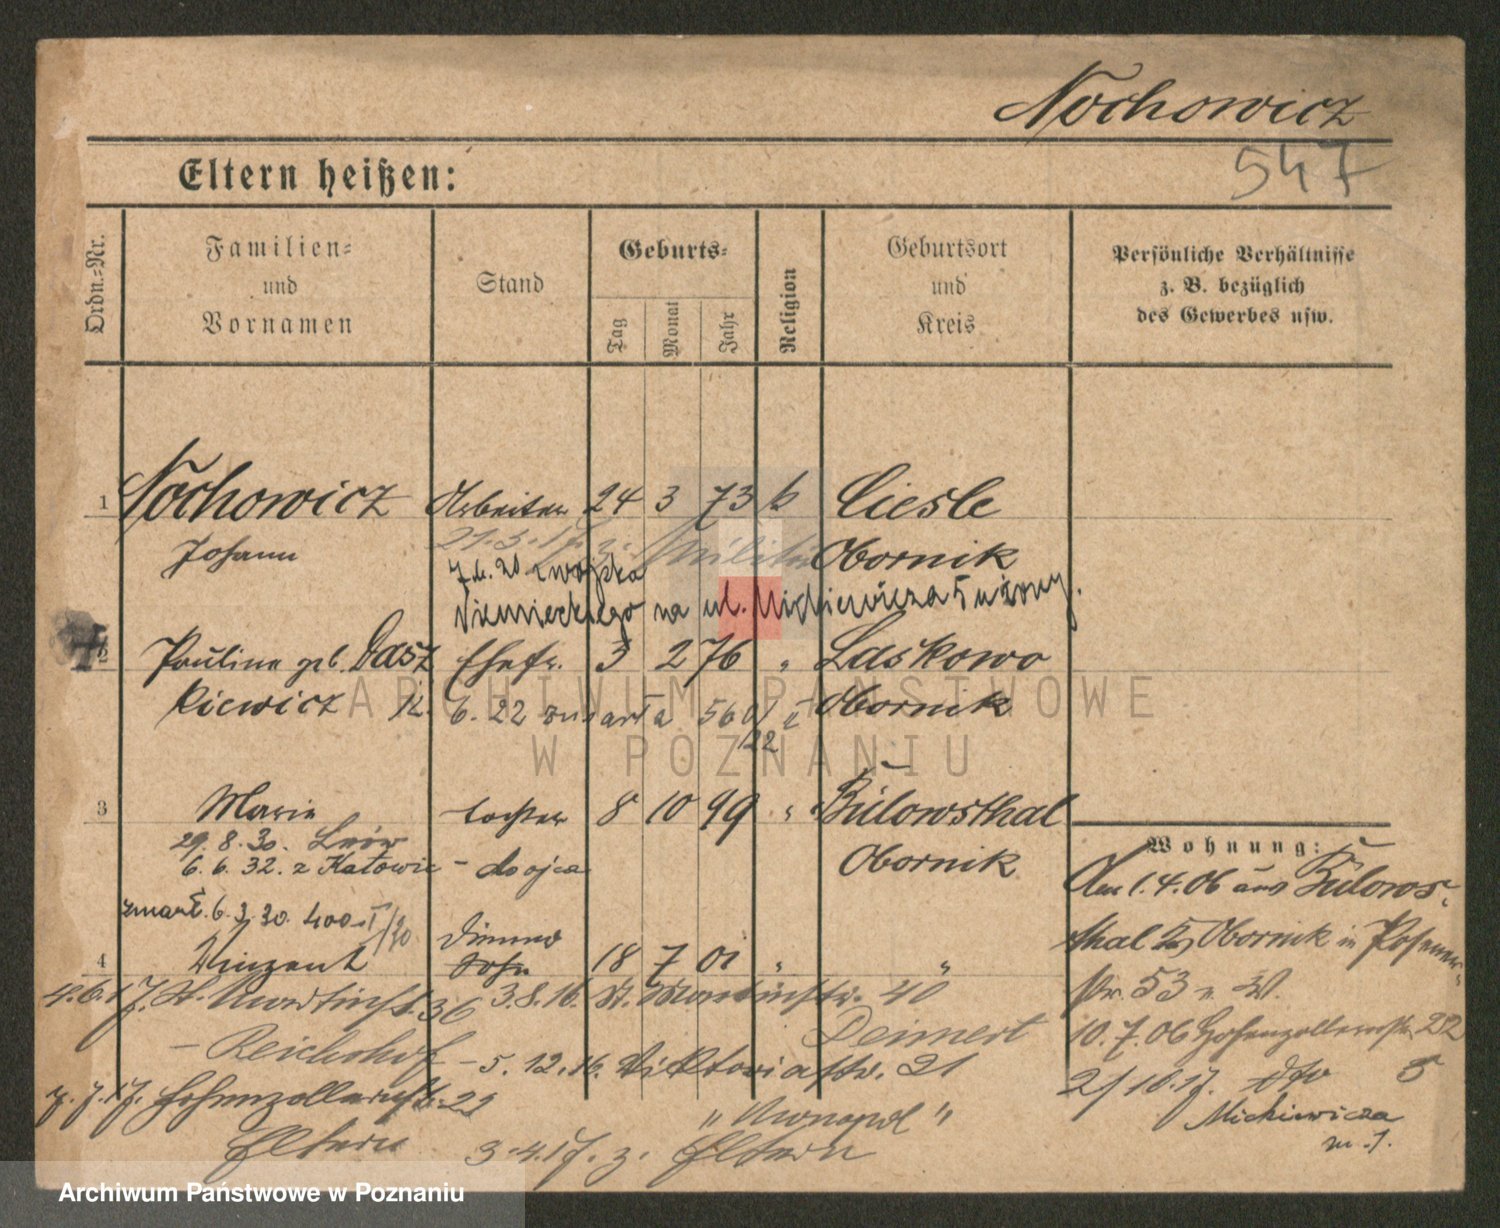 Nochowicz
547
Eltern heißen:
Ordn.-Nr.
Familien- und Vornamen
Stand
Geburts-
Tag
Monat
Jahr
Religion
Geburtsort und Kreis
Persönliche Verhältnisse z. B. bezüglich des Gewerbes usw.
1 Nochowicz Arbeiter 24 3 73 k Ciesle
Johann Obornik
21.3.17 z. Militär
z wojska
Niemieckiego na ul. Mickiewicza 5
2 Pauline geb. Dasz Ehefr. 3 2 76 " Laskowo
kiewicz 12. 6. 22 zmarła 560/22 Obornik
3 Marie Tochter 8 10 99 " Bülowsthal
29. 8. 30. Lwów
6. 6. 32. z Katowic - do ojca Obornik
zmarł. 6. 3. 30. 400 I/30
4 Vinzent Sohn 18 7 01 " "
Wohnung:
Am 1.4.06 aus Bülows-
thal Obornik in Posener-
str. 53 v. W.
10.7.06 Hohenzollernstr. 22
2/10.17. dto 5
Mickiewicza
m. 1.
4.6.17. St. Martinstr. 36 3.8.16. St. Martinstr. 40
Deinert
- Reichshof - 5. 12. 16. Viktoriastr. 21
7.7.17. Hohenzollernstr. 22 "Monopol"
Eltern 3.4.17. z. Eltern
ARCHIWUM PAŃSTWOWE
W POZNANIU
Archiwum Państwowe w Poznaniu